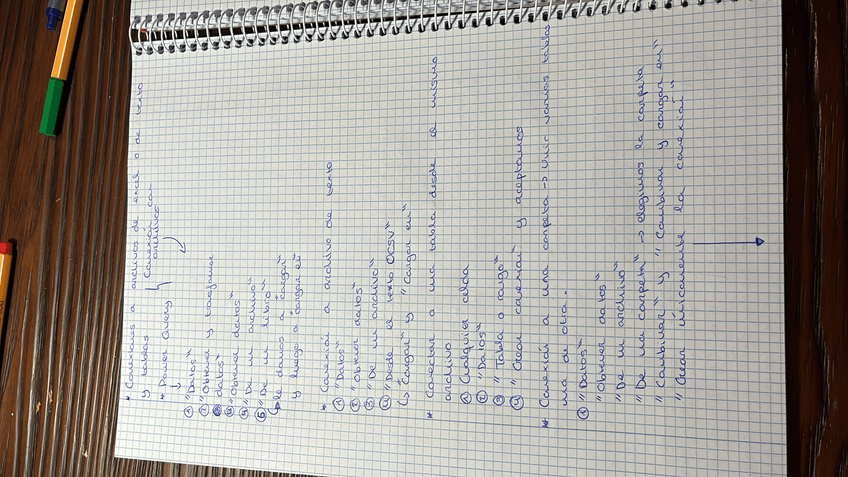 * Conexiones a archivos de excel o de texto
y tablas
* Power Query } Conexión con
archivos
↓
① "Datos"
② "Obtener y trasformar
datos"
③ "Obtener datos"
④ "De un archivo"
⑤ "De un libro"
↳ le damos a "cargar"
y luego a "cargar en"
* Conexión a archivo de texto
① "Datos"
② "Obtener datos"
③ "De un archivo"
④ "Desde el texto OCSV"
↳ "Cargar" y "Cargar en"
* Conectar a una tabla desde el mismo
archivo
① Cualquier celda
② "Datos"
③ "Tabla o rango"
④ "Crear conexión" y aceptamos
* Conexión a una carpeta -> Unir varias tablas
una de otra.
① "Datos"
"Obtener datos"
"De un archivo"
"De una carpeta" -> elegimos la carpeta
"Combinar" y "Combinar y cargar en"
"Crear únicamente la conexión"